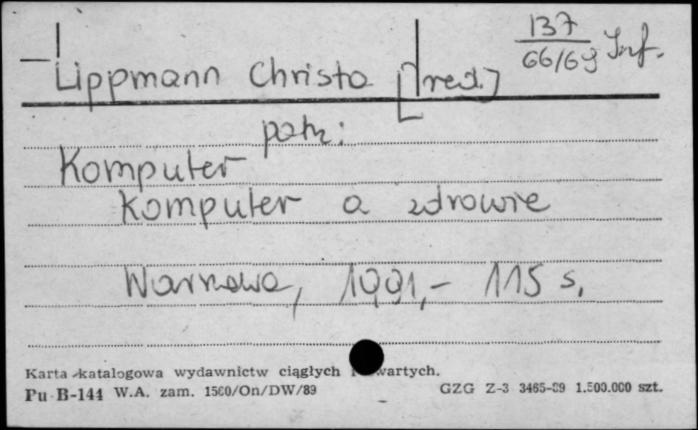 137
66/69 Inf.
Lippmann Christa [red.]
patrz:
Komputer
Komputer a zdrowie
Warszawa, 1991,- 115 s.
Karta katalogowa wydawnictw ciągłych i zwartych.
Pu B-144 W.A. zam. 1560/On/DW/89
GZG Z-3 3465-89 1.500.000 szt.